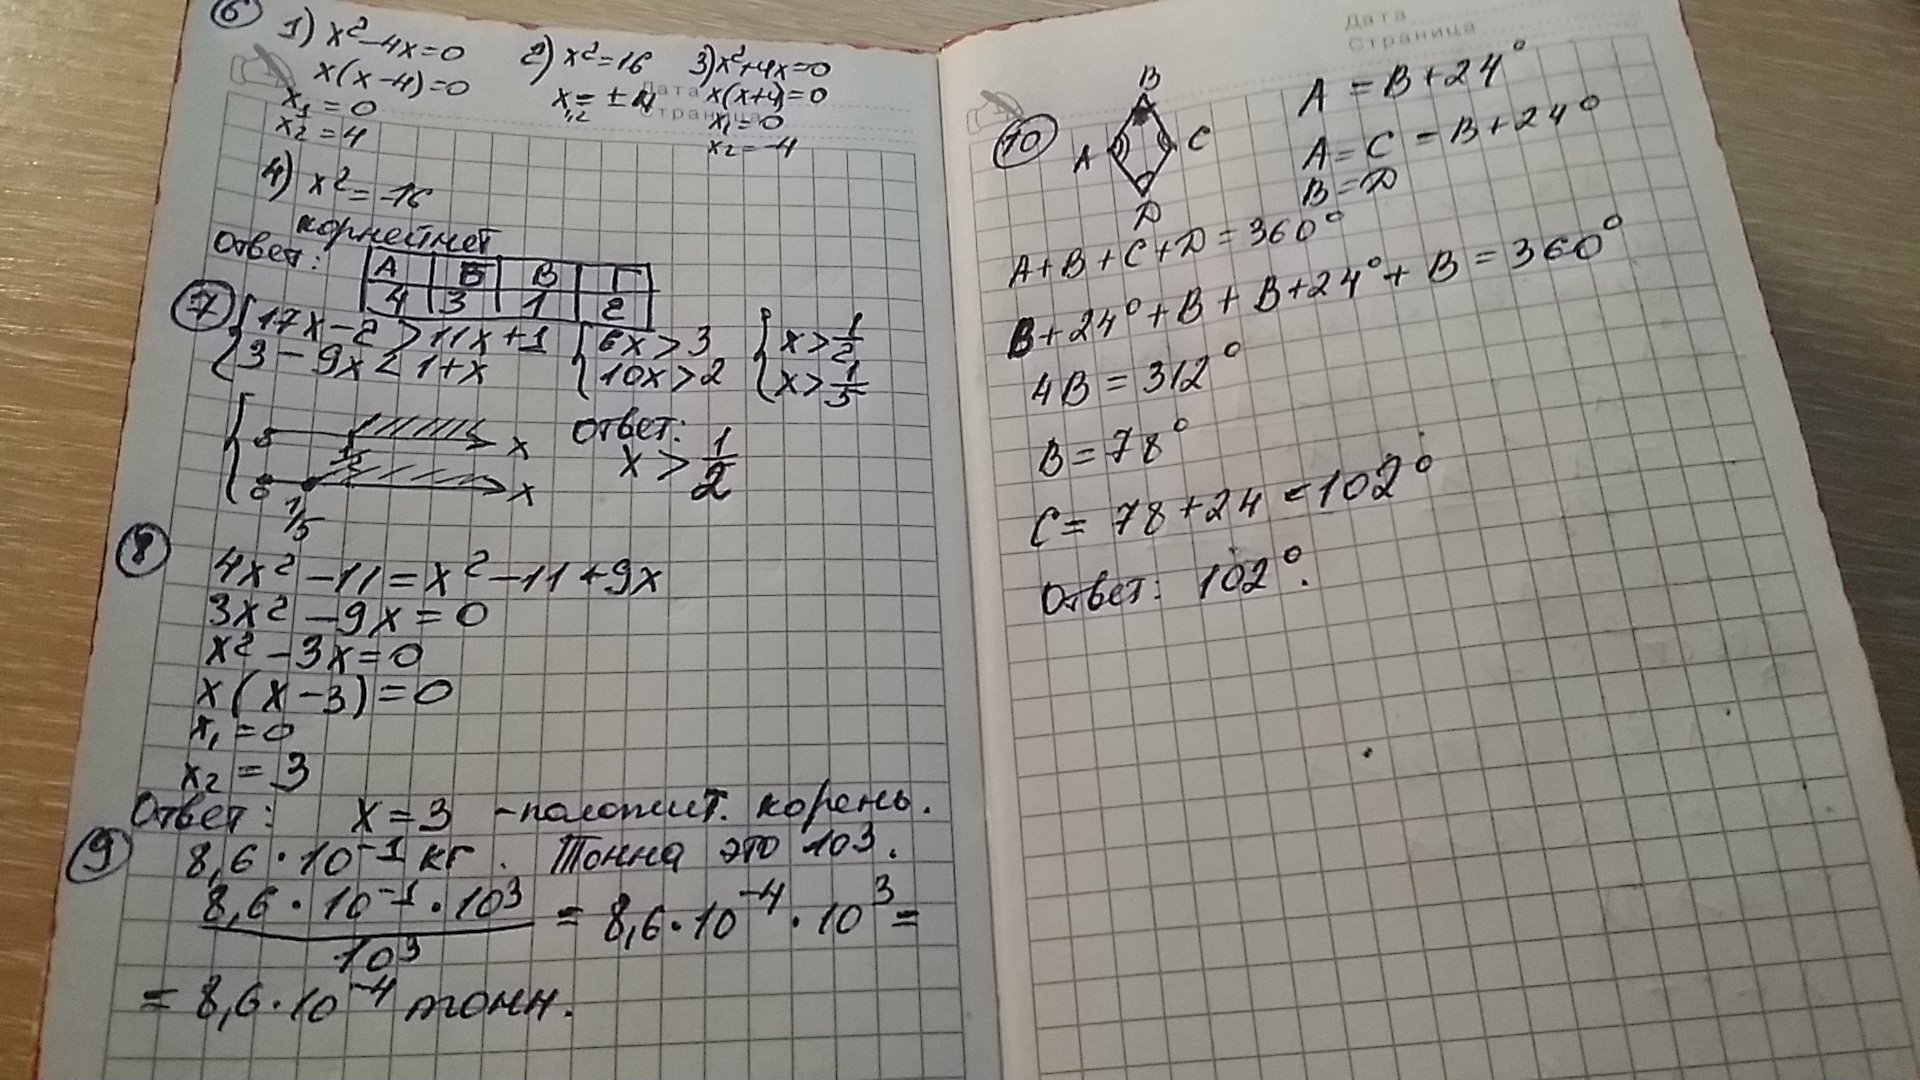 6
1) x²-4x=0
x(x-4)=0
x₁=0
x₂=4
2) x²=16
x₁,₂=±4
3) x²+4x=0
x(x+4)=0
x₁=0
x₂=-4
4) x²=-16
корней нет
Ответ:
А Б В Г
4 3 1 2
7
{17x-2>11x+1 {6x>3 {x>1/2
{3-9x<1+x {10x>2 {x>1/5
0 1/2 x
0 1/5 x
Ответ:
x>1/2
8
4x²-11=x²-11+9x
3x²-9x=0
x²-3x=0
x(x-3)=0
x₁=0
x₂=3
Ответ: x=3 -положит. корень.
9
8,6·10⁻¹ кг. Тонна это 10³.
8,6·10⁻¹·10³/10³ = 8,6·10⁻⁴·10³=
=8,6·10⁻⁴ тонн.
Дата
Страница
Дата
Страница
10
B
A C
D
A=B+24°
A=C=B+24°
B=D
A+B+C+D=360°
B+24°+B+B+24°+B=360°
4B=312°
B=78°
C=78+24=102°
Ответ: 102°.